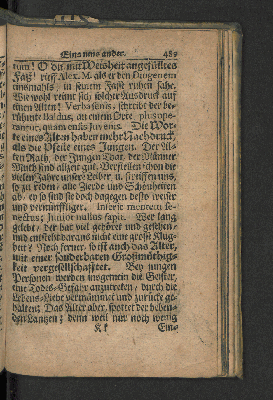 Eins ums ander. 489
tum! O du mit Weisheit angefülltes
Faß! rief Alex. M. als er den Diogenem
einsmahls, in seinem Fasse ruhen sahe.
Wie wohl reimt sich solcher Ausdruck auf
einen Alten! Verba senis, schreibt der be-
rühmte Baldus, an einem Orte, plus ope-
rantur, quam ensis juvenis. Die Wor-
te eines Alten haben mehr Nachdruck,
als die Pfeile eines Jungen. Der Al-
ten Rath, der Jungen That, der Männer
Muth sind allzeit gut. Verstellen schon die
vielen Jahre unser Leben, u. streiffen uns,
so zu reden, alle Zierde und Schönheiten
ab, ey so sind sie doch dagegen desto weiser
und vernünfftiger.
nectus; junior nullus sapit. Wer lang
gelebt, der hat viel gehöret und gesehen,
und entstehet daraus nicht eine grosse Klug-
heit? Noch ferner, so ist auch das Alter,
mit einer sonderbaren Großmüthig-
keit vergesellschafftet. Bey jungen
Personen werden insgemein die Geister,
eine Todes-Gefahr anzutreten, durch die
Lebens-Liebe vermännigt und zurücke ge-
halten; Das Alter aber, spottet der behen-
den Lantzen; denn weil nur noch wenig
Kk Ein-